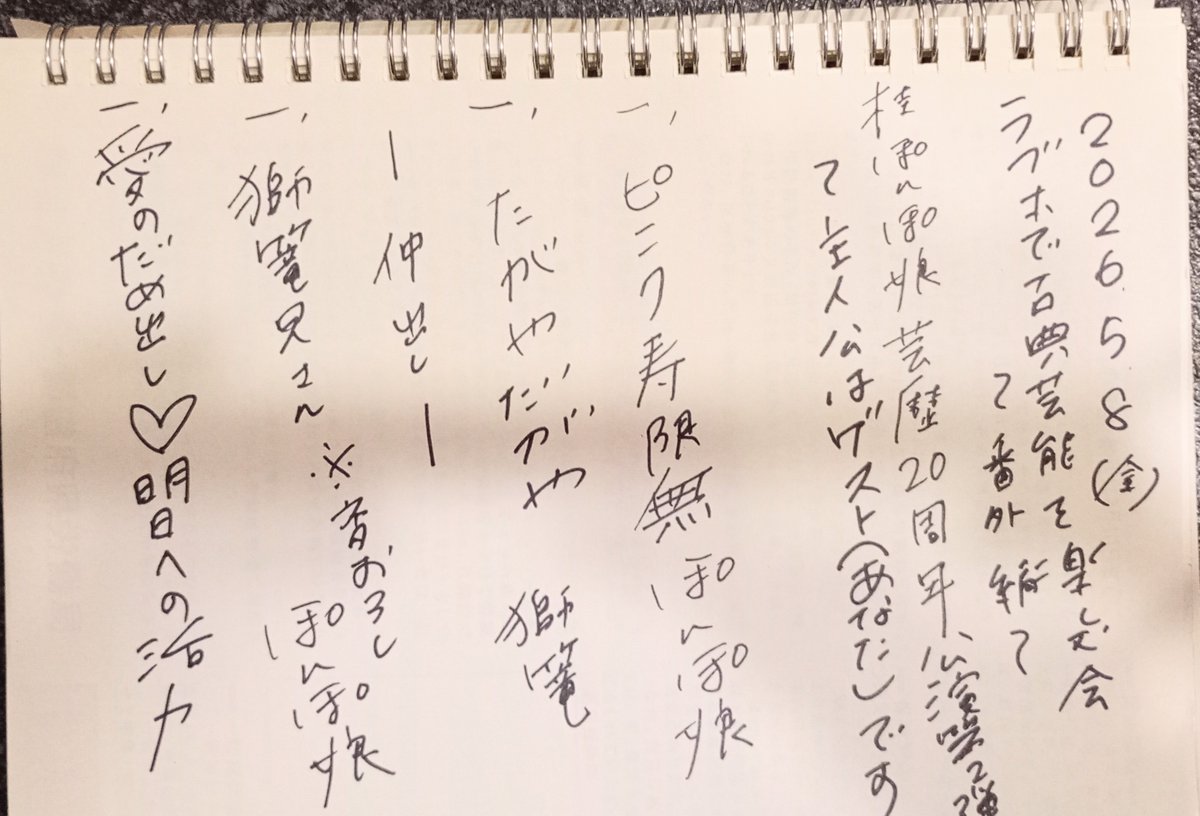 2026.5.8(金)
ラブホで古典芸能を楽しむ会
〜番外編〜
桂ぽんぽ娘芸歴20周年公演第2弾
〜主人公はゲスト(あなた)です
一、ピンク寿限無 ぽんぽ娘
一、たがやだがや 獅篭
ー仲出しー
一、獅篭兄さん ※音おろし ぽんぽ娘
一、愛のだめ出し♡明日への活力